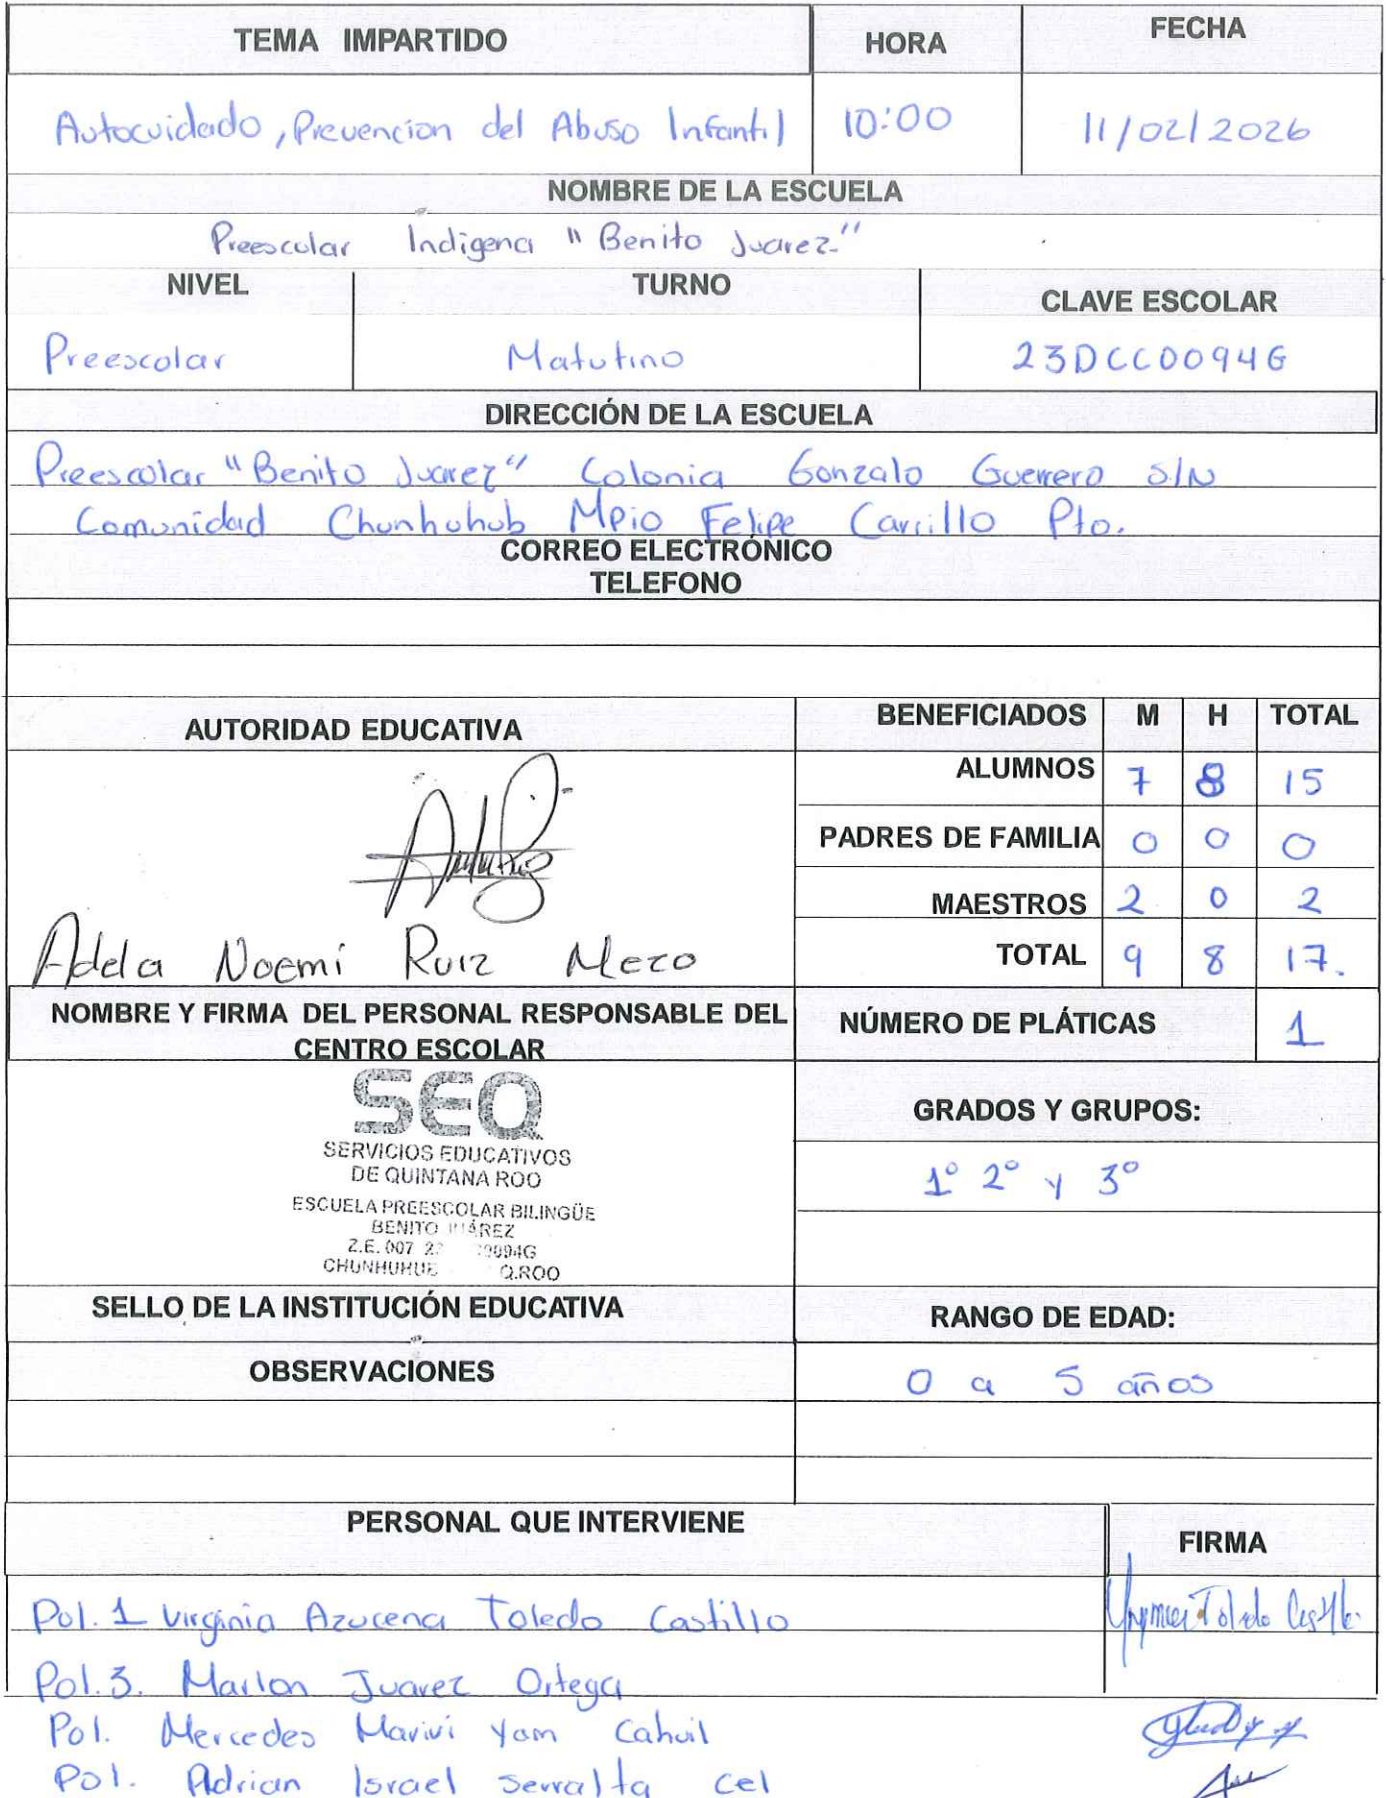 TEMA IMPARTIDO HORA FECHA
Autocuidado, Prevencion del Abuso Infantil 10:00 11/02/2026
NOMBRE DE LA ESCUELA
Preescolar Indigena "Benito Juarez"
NIVEL TURNO CLAVE ESCOLAR
Preescolar Matutino 23DCC0094G
DIRECCIÓN DE LA ESCUELA
Preescolar "Benito Juarez" Colonia Gonzalo Guerrero S/N
Comunidad Chunhuhub Mpio Felipe Carrillo Pto.
CORREO ELECTRÓNICO
TELEFONO
AUTORIDAD EDUCATIVA
Adela Noemi Ruiz Mezo
NOMBRE Y FIRMA DEL PERSONAL RESPONSABLE DEL
CENTRO ESCOLAR
SEQ
SERVICIOS EDUCATIVOS
DE QUINTANA ROO
ESCUELA PREESCOLAR BILINGÜE
BENITO JUÁREZ
Z.E. 007
Q.ROO
SELLO DE LA INSTITUCIÓN EDUCATIVA
OBSERVACIONES
BENEFICIADOS M H TOTAL
ALUMNOS 7 8 15
PADRES DE FAMILIA 0 0 0
MAESTROS 2 0 2
TOTAL 9 8 17.
NÚMERO DE PLÁTICAS 1
GRADOS Y GRUPOS:
1° 2° y 3°
RANGO DE EDAD:
0 a 5 años
PERSONAL QUE INTERVIENE FIRMA
Pol. 1 Virginia Azucena Toledo Castillo
Pol. 3. Marlon Juarez Ortega
Pol. Mercedes Marivi Yam Cahuil
Pol. Adrian Israel Serralta Cel